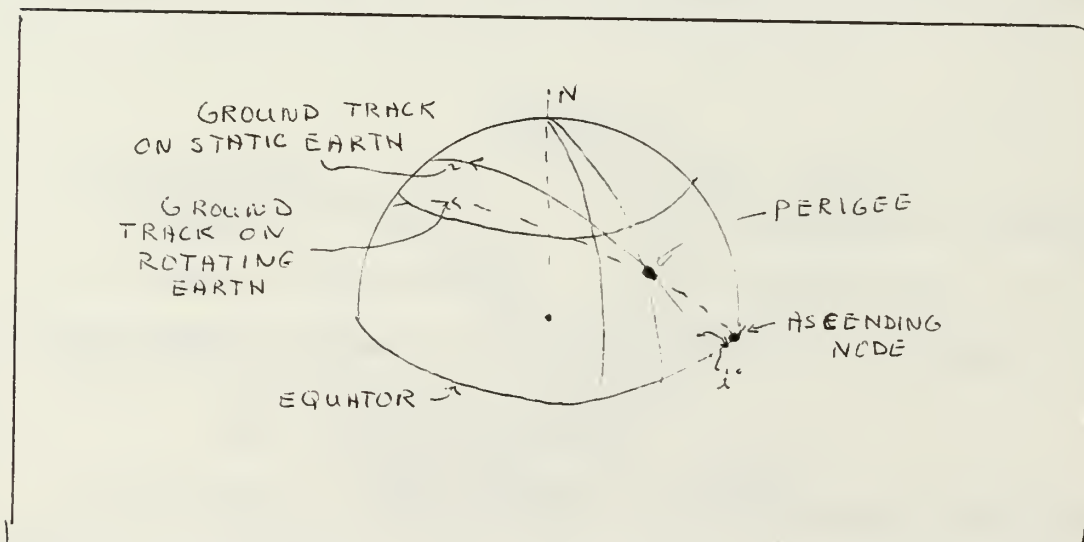 N
GROUND TRACK
ON STATIC EARTH
GROUND
TRACK ON
ROTATING
EARTH
PERIGEE
ASCENDING
NODE
i
EQUATOR